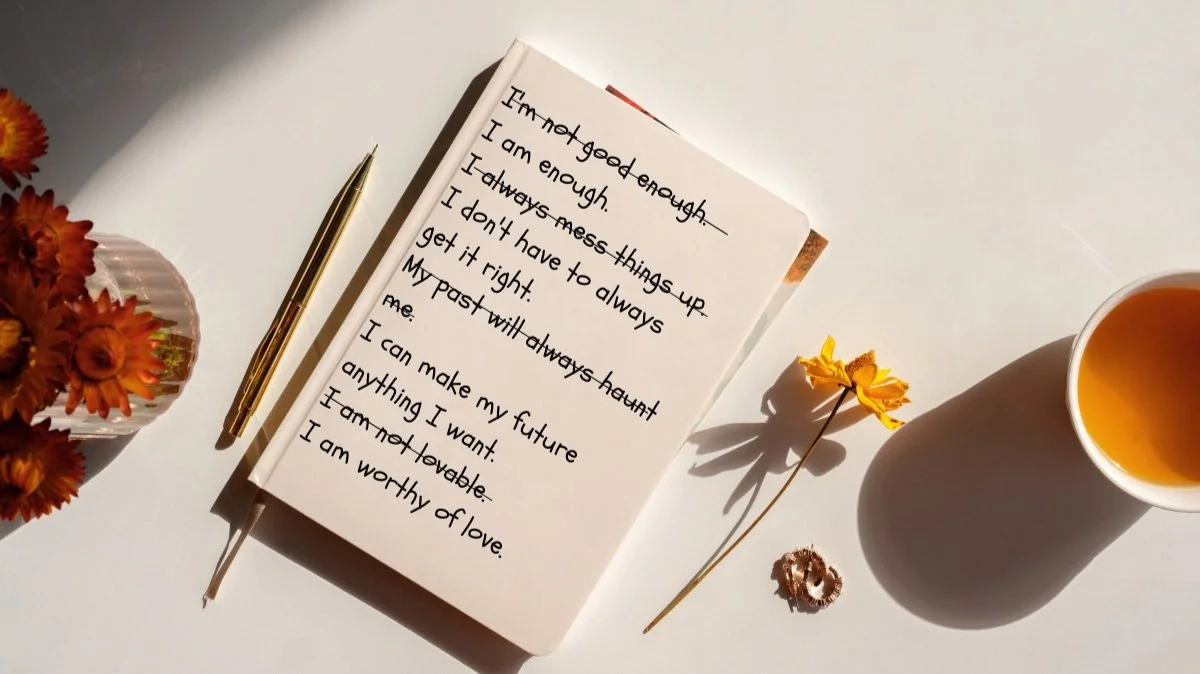 I'm not good enough.
I am enough.
I always mess things up.
I don't have to always
get it right.
My past will always haunt
me.
I can make my future
anything I want.
I am not lovable.
I am worthy of love.